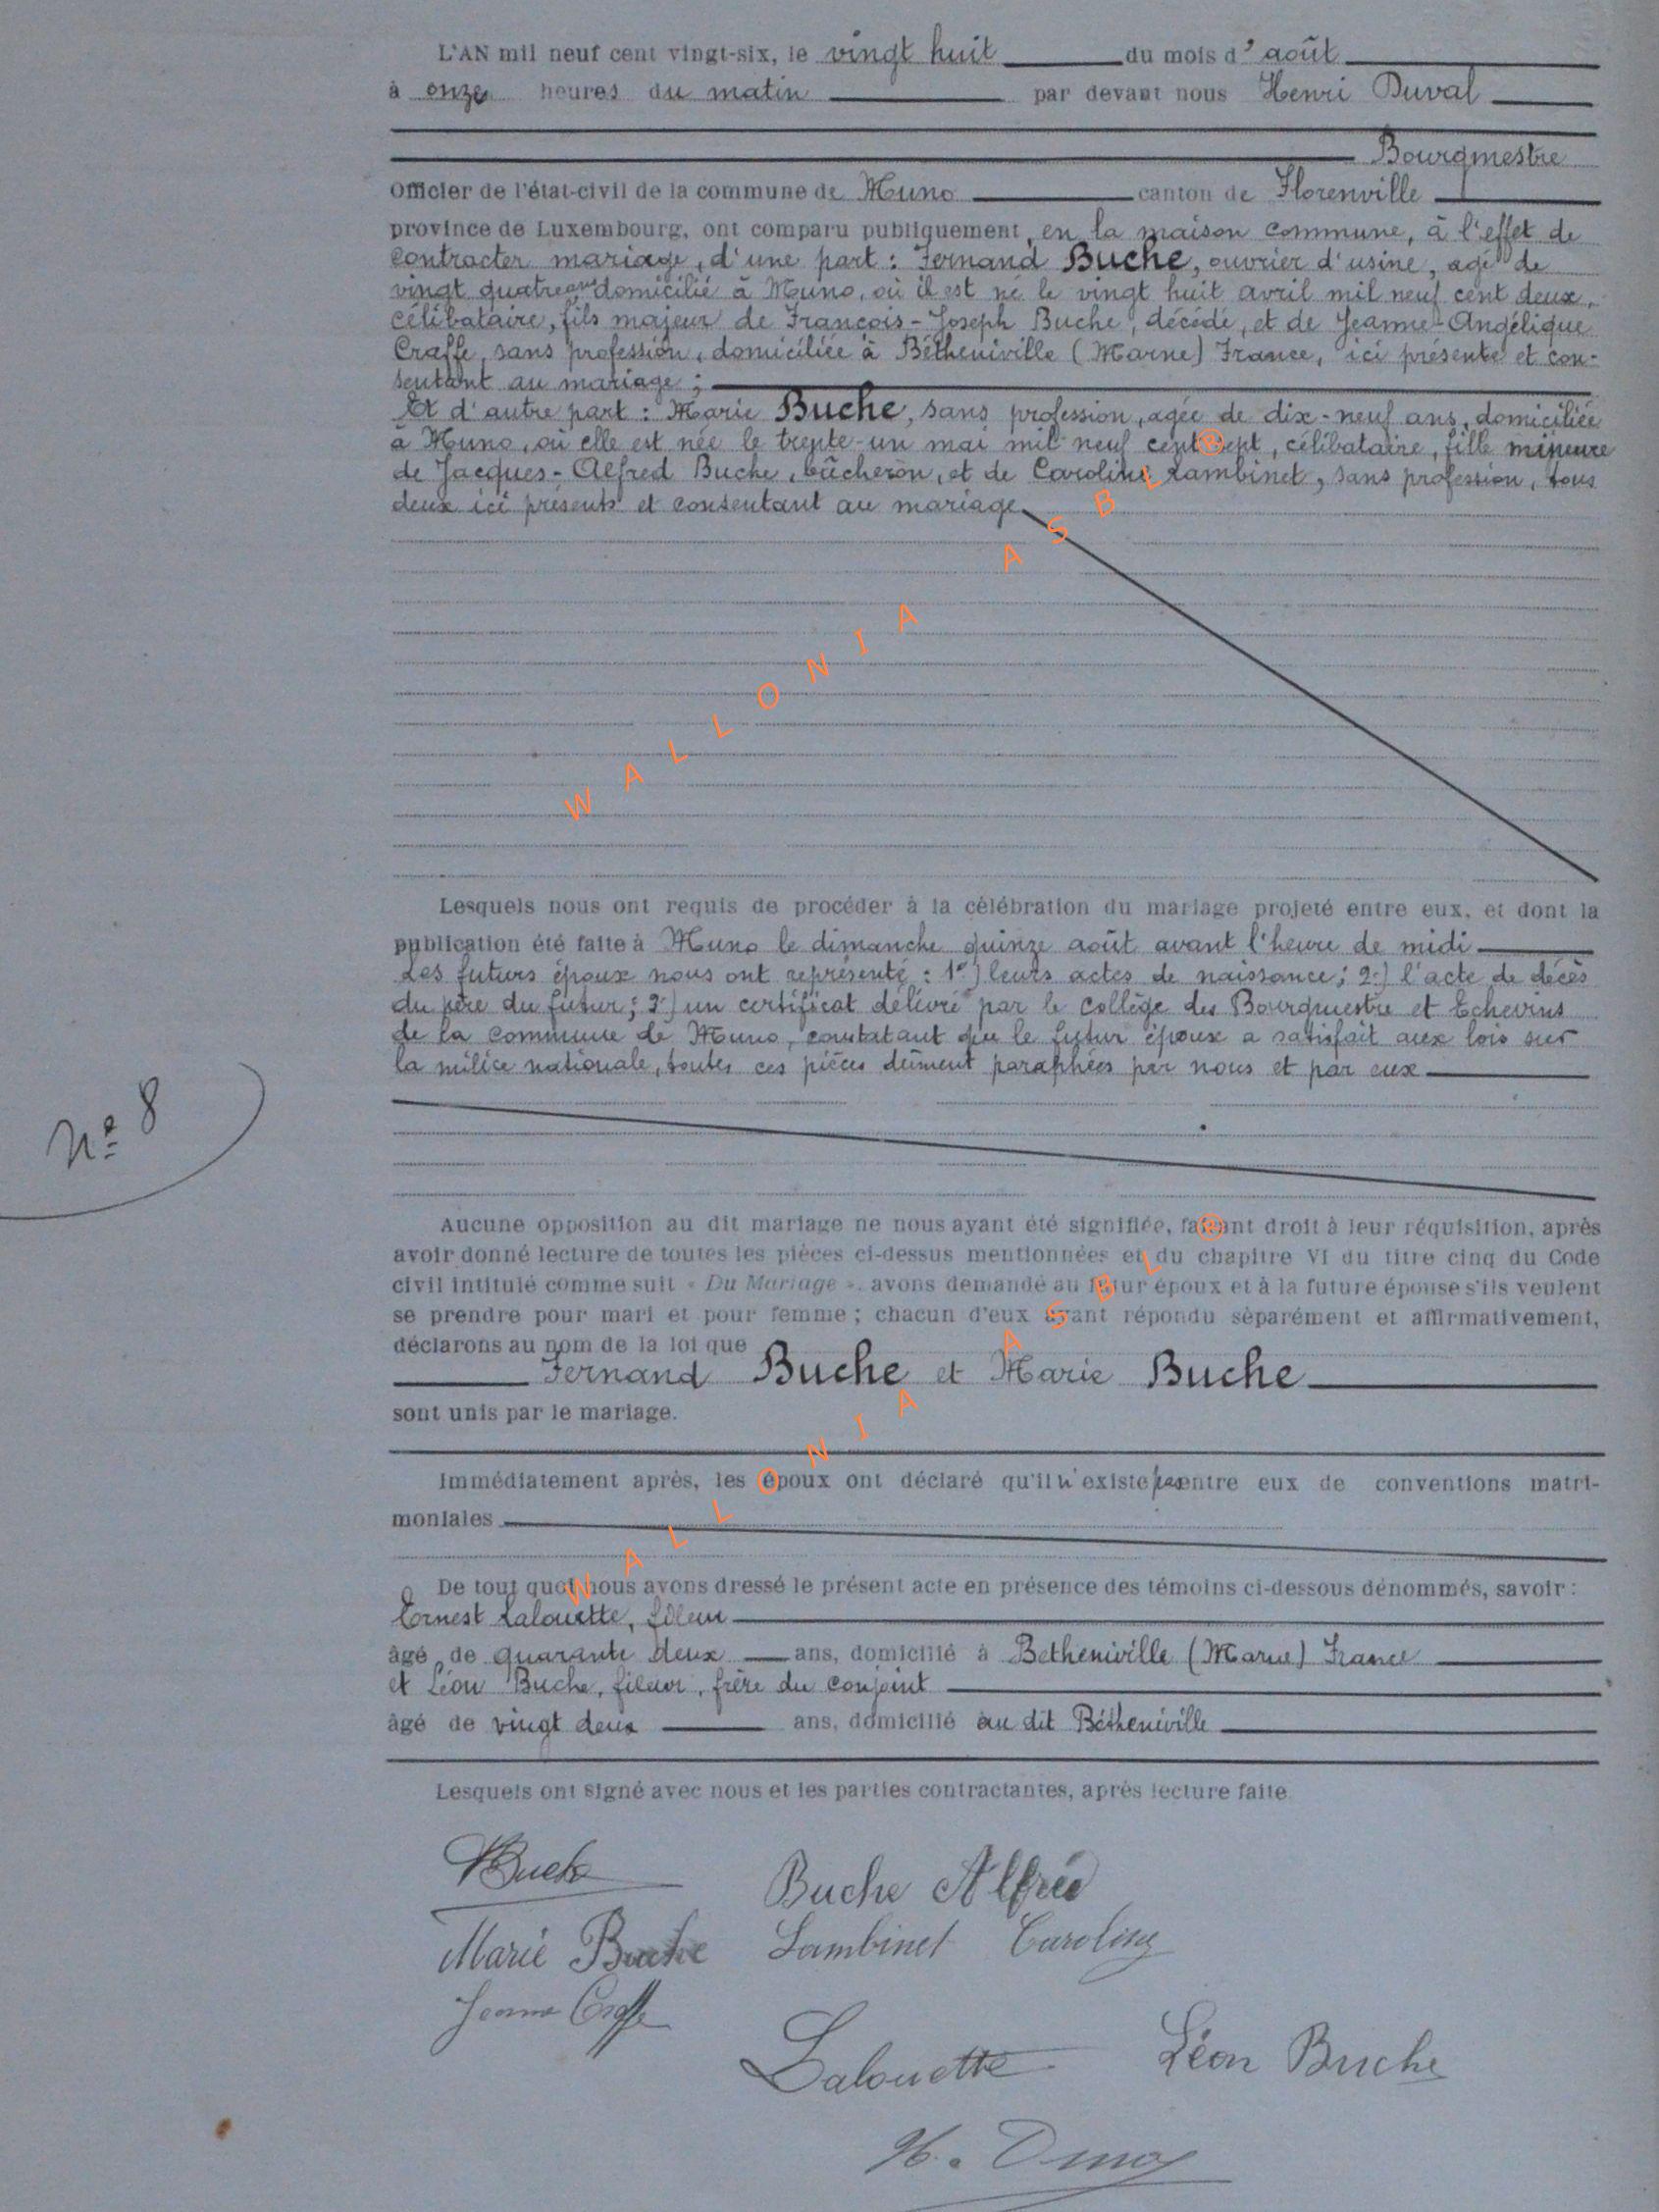 L'AN mil neuf cent vingt-six, le vingt huit du mois d'août
à onze heures du matin par devant nous Henri Duval
Bourgmestre
Officier de l'état-civil de la commune de Muno canton de Florenville
province de Luxembourg, ont comparu publiquement, en la maison commune, à l'effet de
contracter mariage, d'une part : Fernand Buche, ouvrier d'usine, agé de
vingt quatre ans domicilié à Muno, où il est né le vingt huit avril mil neuf cent deux,
célibataire, fils majeur de François-Joseph Buche, décédé, et de Jeanne-Angélique
Craffe, sans profession, domiciliée à Bétheniville (Marne) France, ici présente et con-
sentant au mariage ;
Et d'autre part : Marie Buche, sans profession, agée de dix-neuf ans, domiciliée
à Muno, où elle est née le trente-un mai mil neuf cent sept, célibataire, fille mineure
de Jacques-Alfred Buche, bûcheron, et de Caroline Lambinet, sans profession, tous
deux ici présents et consentant au mariage
WALLONIA ASBL ®
Lesquels nous ont requis de procéder à la célébration du mariage projeté entre eux, et dont la
publication été faite à Muno le dimanche quinze août avant l'heure de midi
Les futurs époux nous ont représenté : 1º) leurs actes de naissance ; 2º) l'acte de décès
du père du futur ; 3º) un certificat délivré par le collège des Bourgmestre et Echevins
de la commune de Muno, constatant que le futur époux a satisfait aux lois sur
la milice nationale, toutes ces pièces dûment paraphées par nous et par eux
Nº 8
Aucune opposition au dit mariage ne nous ayant été signifiée, faisant droit à leur réquisition, après
avoir donné lecture de toutes les pièces ci-dessus mentionnées et du chapitre VI du titre cinq du Code
civil intitulé comme suit « Du Mariage », avons demandé au futur époux et à la future épouse s'ils veulent
se prendre pour mari et pour femme ; chacun d'eux ayant répondu séparément et affirmativement,
déclarons au nom de la loi que
Fernand Buche et Marie Buche
sont unis par le mariage.
WALLONIA ASBL ®
Immédiatement après, les époux ont déclaré qu'il n'existe pas entre eux de conventions matri-
moniales
De tout quoi nous avons dressé le présent acte en présence des témoins ci-dessous dénommés, savoir :
Ernest Lalouette, fileur
âgé de quarante deux ans, domicilié à Betheniville (Marne) France
et Léon Buche, fileur, frère du conjoint
âgé de vingt deux ans, domicilié au dit Bétheniville
Lesquels ont signé avec nous et les parties contractantes, après lecture faite
Buche Buche Alfred
Marie Buche Lambinet Caroline
Jeanne Craffe
Lalouette Léon Buche
H. Duval